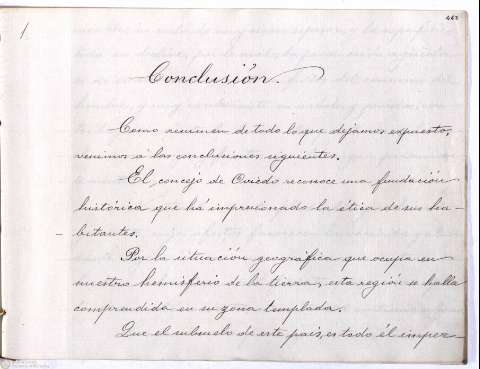 442
1
Conclusión.
Como resumen de todo lo que dejamos expuesto,
venimos á las conclusiones siguientes.
El, concejo de Oviedo reconoce una fundación
histórica que há impresionado la ética de sus ha-
bitantes.
Por la situación geográfica que ocupa en
nuestro hemisferio de la tierra, esta región se halla
comprendida en su zona templada.
Que el subsuelo de este país, es todo él imper-